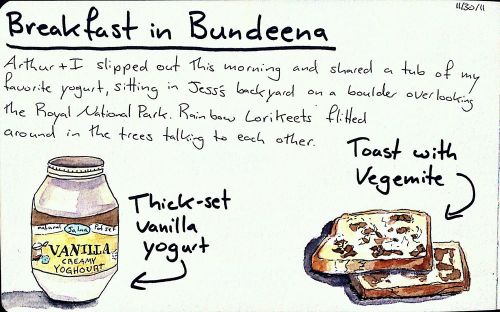 11/30/11
Breakfast in Bundeena
Arthur + I slipped out this morning and shared a tub of my
favorite yogurt, sitting in Jess's backyard on a boulder overlooking
the Royal National Park. Rainbow Lorikeets flitted
around in the trees talking to each other.
Toast with
Vegemite
Thick-set
vanilla
yogurt
natural Jalna Pot set
VANILLA
CREAMY
YOGHOURT